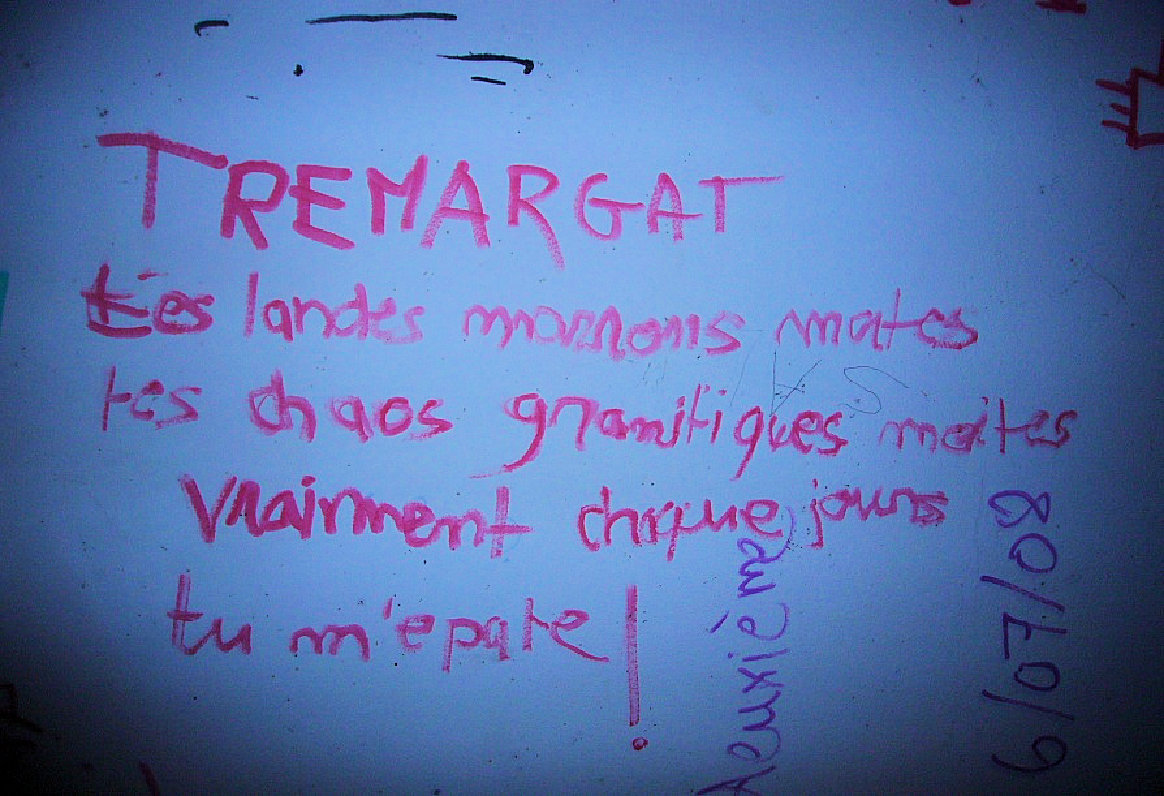 TREMARGAT
tes landes marrons mates
tes chaos granitiques moites
vraiment chaque jours
tu m'epate!
deuxième
6/07/08